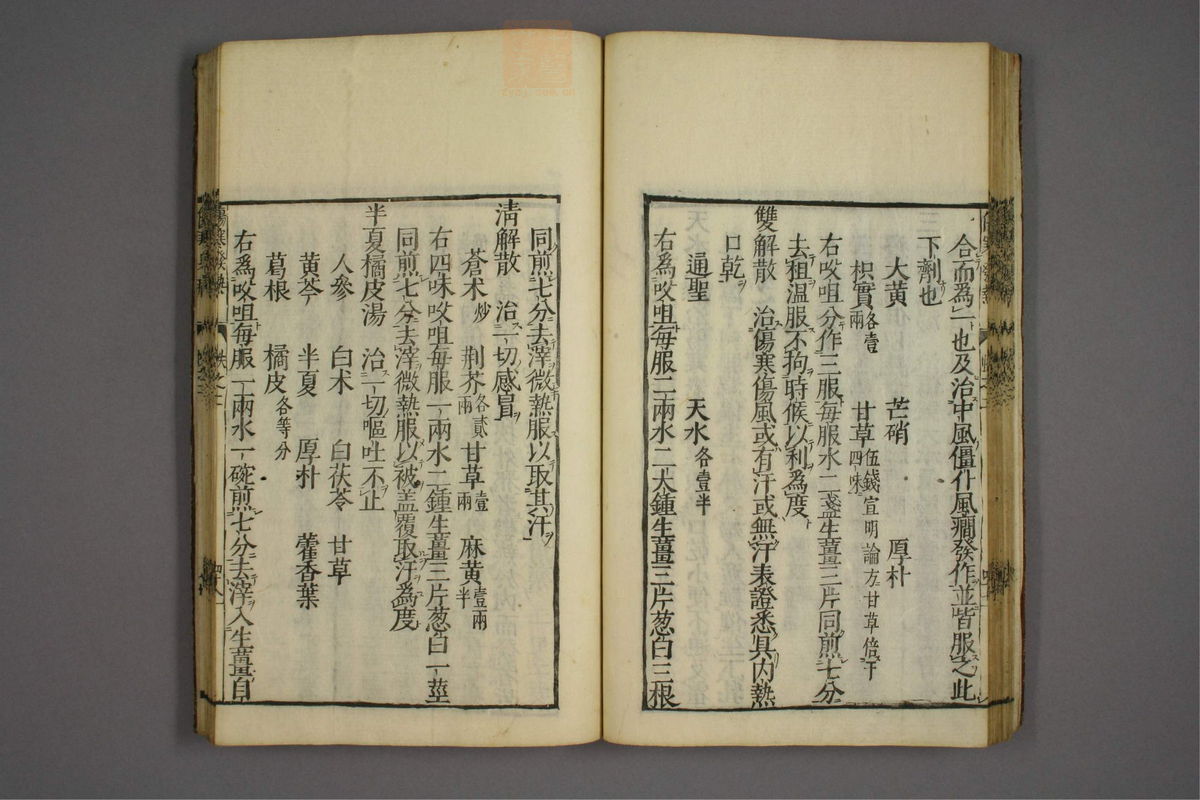 合而爲一也及治中風僵仆風癎發作並皆服之此
下劑也
大黄　芒硝　厚朴
枳實各壹兩　甘草伍錢宣明論方甘草倍于四味
右㕮咀分作三服每服水二盞生薑三片同煎七分
去柤温服不拘時候以利爲度
雙解散　治傷寒傷風或有汗或無汗表證悉具内熱
口乾
通聖　天水各壹半
右爲㕮咀每服二兩水二大鍾生薑三片葱白三根
同煎七分去滓微熱服以取其汗
清解散　治一切感冒
蒼术炒　荆芥各貳兩　甘草壹兩　麻黄壹兩半
右四味㕮咀每服一兩水二鍾生薑三片葱白一莖
同煎七分去滓微熱服以被盖覆取汗爲度
半夏橘皮湯　治一切嘔吐不止
人參　白术　白茯苓　甘草
黄芩　半夏　厚朴　藿香葉
葛根　橘皮各等分
右爲㕮咀每服一兩水一碗煎七分去滓入生薑自